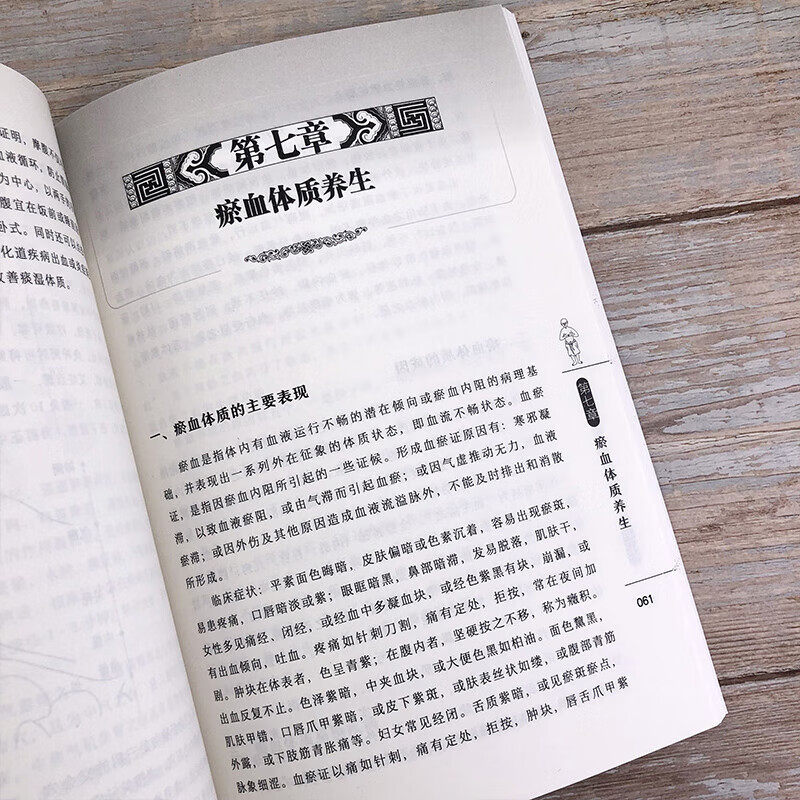 证明，摩腹不
血液循环，防止
为中心，以两手
腹宜在饭前或
卧式。同时还可以
化道疾病出血或
改善痰湿体质。
第七章
瘀血体质养生
一、瘀血体质的主要表现
瘀血是指体内有血液运行不畅的潜在倾向或瘀血内阻的病理基
础，并表现出一系列外在征象的体质状态，即血流不畅状态。血瘀
证，是指因瘀血内阻所引起的一些证候。形成血瘀证原因有：寒邪凝
滞，以致血液瘀阻，或由气滞而引起血瘀；或因气虚推动无力，血液
瘀滞；或因外伤及其他原因造成血液流溢脉外，不能及时排出和消散
所形成。
临床症状：平素面色晦暗，皮肤偏暗或色素沉着，容易出现瘀斑，
易患疼痛，口唇暗淡或紫；眼眶暗黑，鼻部暗滞，发易脱落，肌肤干，
女性多见痛经、闭经，或经血中多凝血块，或经色紫黑有块，崩漏，或
有出血倾向，吐血。疼痛如针刺刀割，痛有定处，拒按，常在夜间加
剧。肿块在体表者，色呈青紫；在腹内者，坚硬按之不移，称为癥积。
出血反复不止。色泽紫暗，中夹血块，或大便色黑如柏油。面色黧黑，
肌肤甲错，口唇爪甲紫暗，或皮下紫斑，或肤表丝状如缕，或腹部青筋
外露，或下肢筋青胀痛等。妇女常见经闭。舌质紫暗，或见瘀斑瘀点，
脉象细涩。血瘀证以痛如针刺，痛有定处，拒按，肿块，唇舌爪甲紫
第七章
瘀血体质养生
061